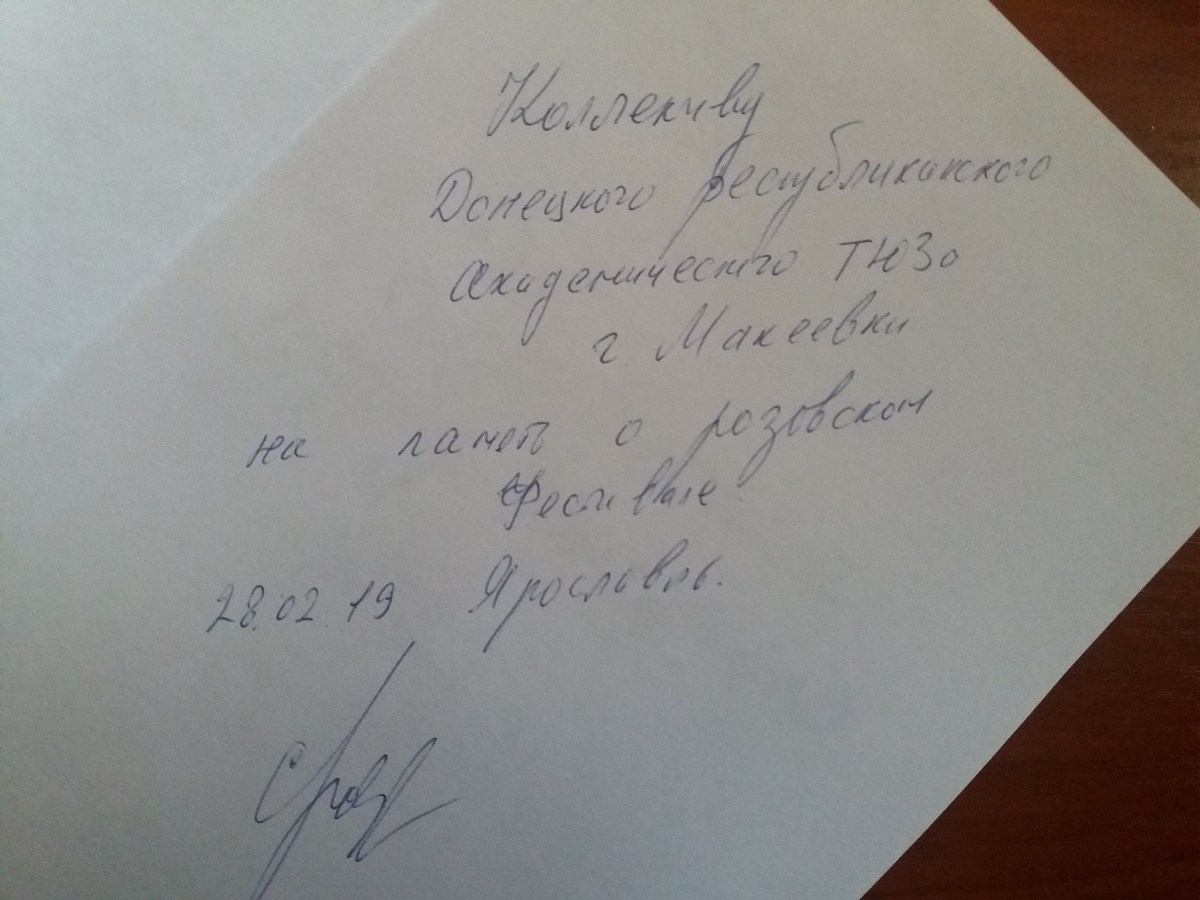 Коллективу
Донецкого республиканского
Академического ТЮЗа
г. Макеевки
на память о розовском
Фестивале
28.02.19 Ярославль.